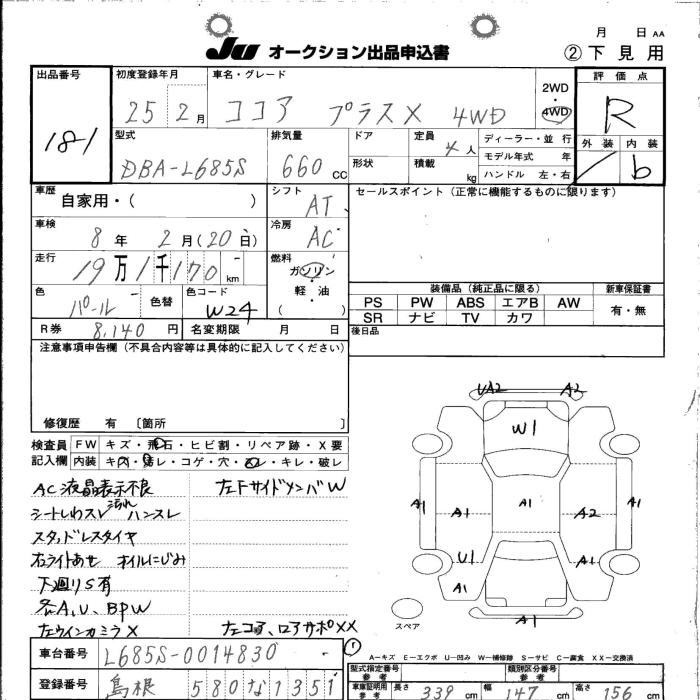 JU オークション出品申込書
月 日 AA
② 下見用
出品番号 181
初度登録年月 25 2月
車名・グレード ココア プラスX 4WD
2WD・4WD
評価点 R
外装 内装 b
型式 DBA-L685S
排気量 660 cc
ドア 形状
定員 4人
積載 kg
ディーラー・並行
モデル年式 年
ハンドル 左・右
車歴 自家用・( )
シフト AT
セールスポイント(正常に機能するものに限ります)
車検 8年 2月(20日)
冷房 AC
走行 19万1千170 km
燃料 ガソリン・軽油 ( )
色 パール 色替
色コード W24
装備品(純正品に限る) 新車保証書
PS PW ABS エアB AW
SR ナビ TV カワ
有・無
R券 8,140円 名変期限 月 日
後日品
注意事項申告欄(不具合内容等は具体的に記入してください)
修復歴 有 〔箇所 〕
検査員記入欄
FW キズ・飛石・ヒビ割・リペア跡・X要
内装 キズ・汚レ・コゲ・穴・スレ・キレ・破レ
AC液晶表示不良
左Fサイドメンバ W
シートしわスレ 汚れ ハンスレ
スタッドレスタイヤ
右ライトあせ オイルにじみ
下廻りS有
各A,U、BPW
左ウインカミラX
左コア、ロアサポXX
UA2 A2
W1
A1 A1 A1 A2 A1
U1 A1
A1
A1
スペア
①
A－キズ E－エクボ U－凹み W－補修跡 S－サビ C－腐食 XX－交換済
車台番号 L685S-0014830
型式指定番号 参考
類別区分番号 参考
登録番号 島根 580 な 1351
車庫証明用 参考 長さ 339 cm 幅 147 cm 高さ 156 cm